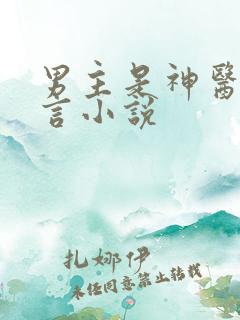 男主是神醫
言小說
扎娜伊
未经同意禁止转载